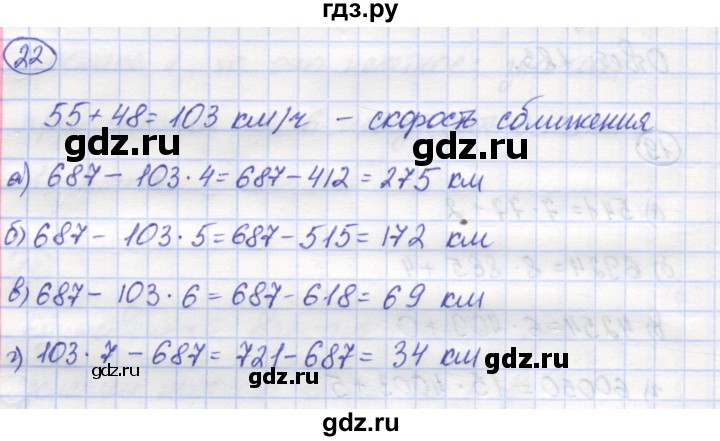 гдз.ру
22
55 + 48 = 103 км/ч – скорость сближения
gdz.ru gdz.ru
а) 687 – 103 · 4 = 687 – 412 = 275 км
gdz.ru gdz.ru
б) 687 – 103 · 5 = 687 – 515 = 172 км
gdz.ru gdz.ru
в) 687 – 103 · 6 = 687 – 618 = 69 км
gdz.ru gdz.ru
г) 103 · 7 – 687 = 721 – 687 = 34 км
gdz.ru gdz.ru
gdz.ru